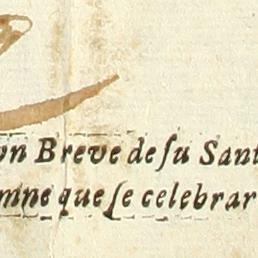 vn Breve de ſu Sant
mne que ſe celebrar